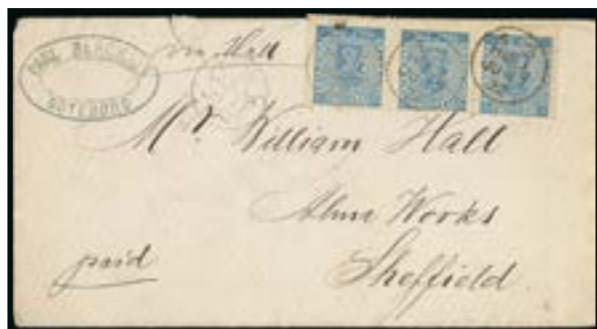 PAUL
GÖTEBORG
via Hull
Mr. William Hall
Works
Sheffield
paid